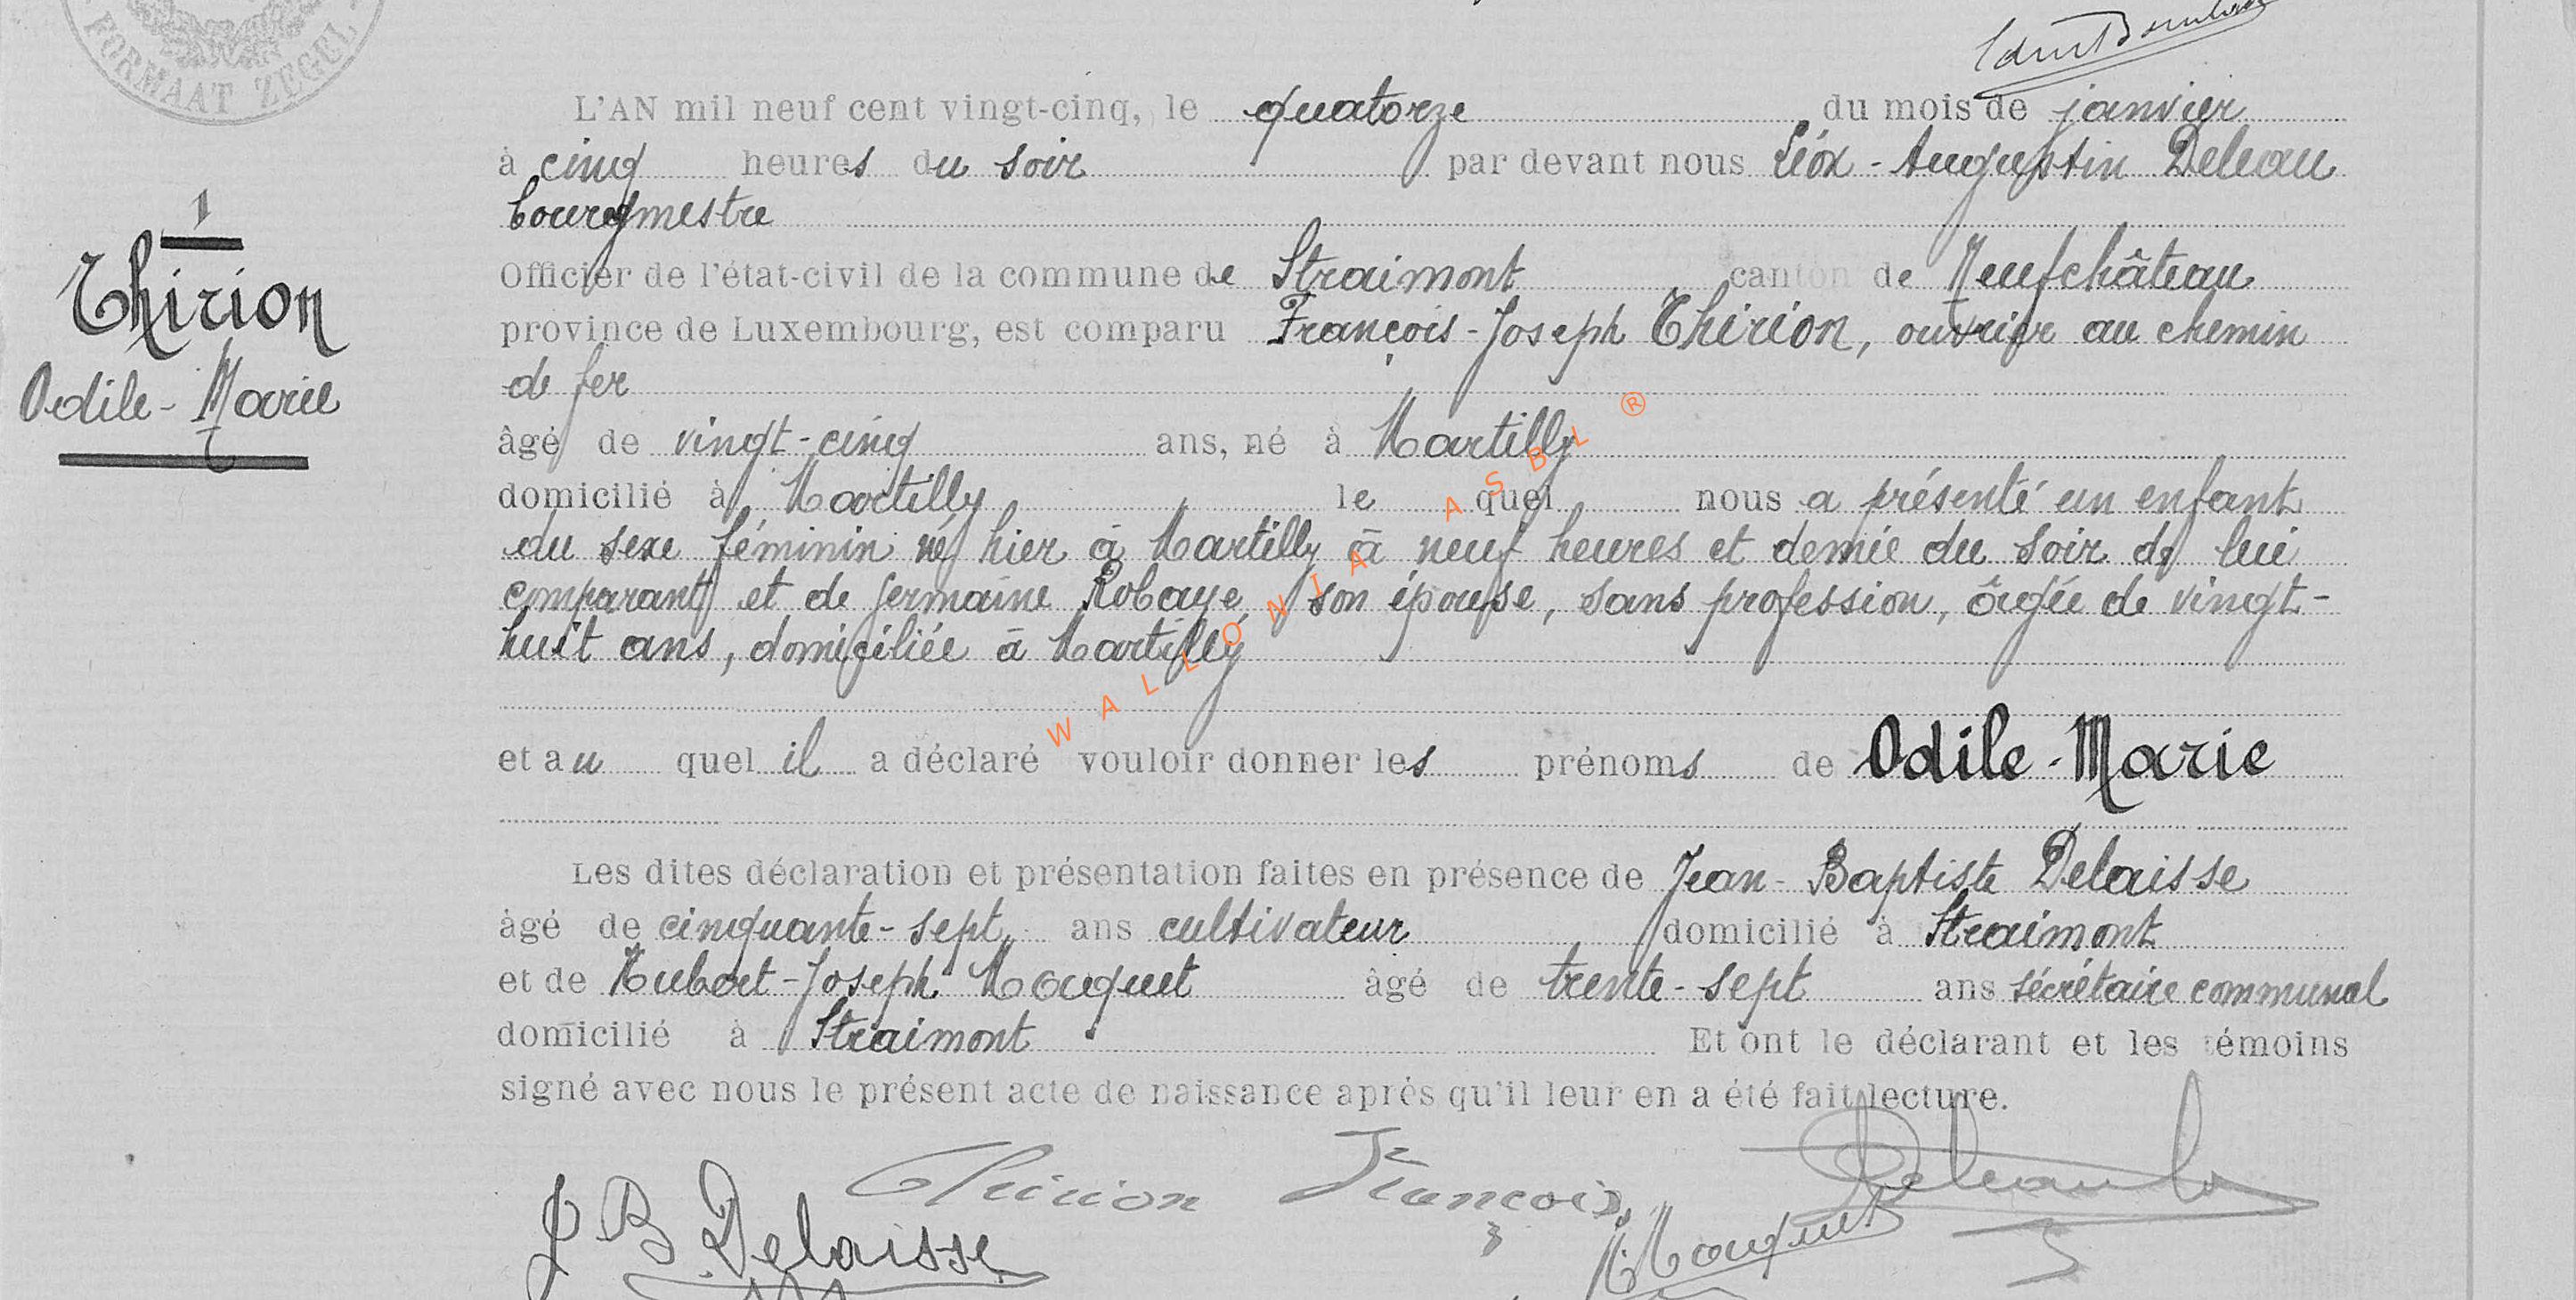 FORMAAT ZEGEL
L'AN mil neuf cent vingt-cinq, le quatorze du mois de janvier
à cinq heures du soir par devant nous Léon-Augustin Deleau
bourgmestre
Officier de l'état-civil de la commune de Straimont canton de Neufchâteau
province de Luxembourg, est comparu François-Joseph Thirion, ouvrier au chemin
de fer
âgé de vingt-cinq ans, né à Martilly
domicilié à Martilly le quel nous a présenté un enfant
du sexe féminin né hier à Martilly à neuf heures et demie du soir de lui
comparant et de Germaine Robaye son épouse, sans profession, âgée de vingt-
huit ans, domiciliée à Martilly
et au quel il a déclaré vouloir donner les prénoms de Odile-Marie
Les dites déclaration et présentation faites en présence de Jean-Baptiste Delaisse
âgé de cinquante-sept ans cultivateur domicilié à Straimont
et de Hubert-Joseph Mouquet âgé de trente-sept ans sécrétaire communal
domicilié à Straimont Et ont le déclarant et les témoins
signé avec nous le présent acte de naissance après qu'il leur en a été fait lecture.
1
Thirion
Odile-Marie
Thirion François
J B Delaisse
H. Mouquet
Deleau
WALLONIA ASBL ®